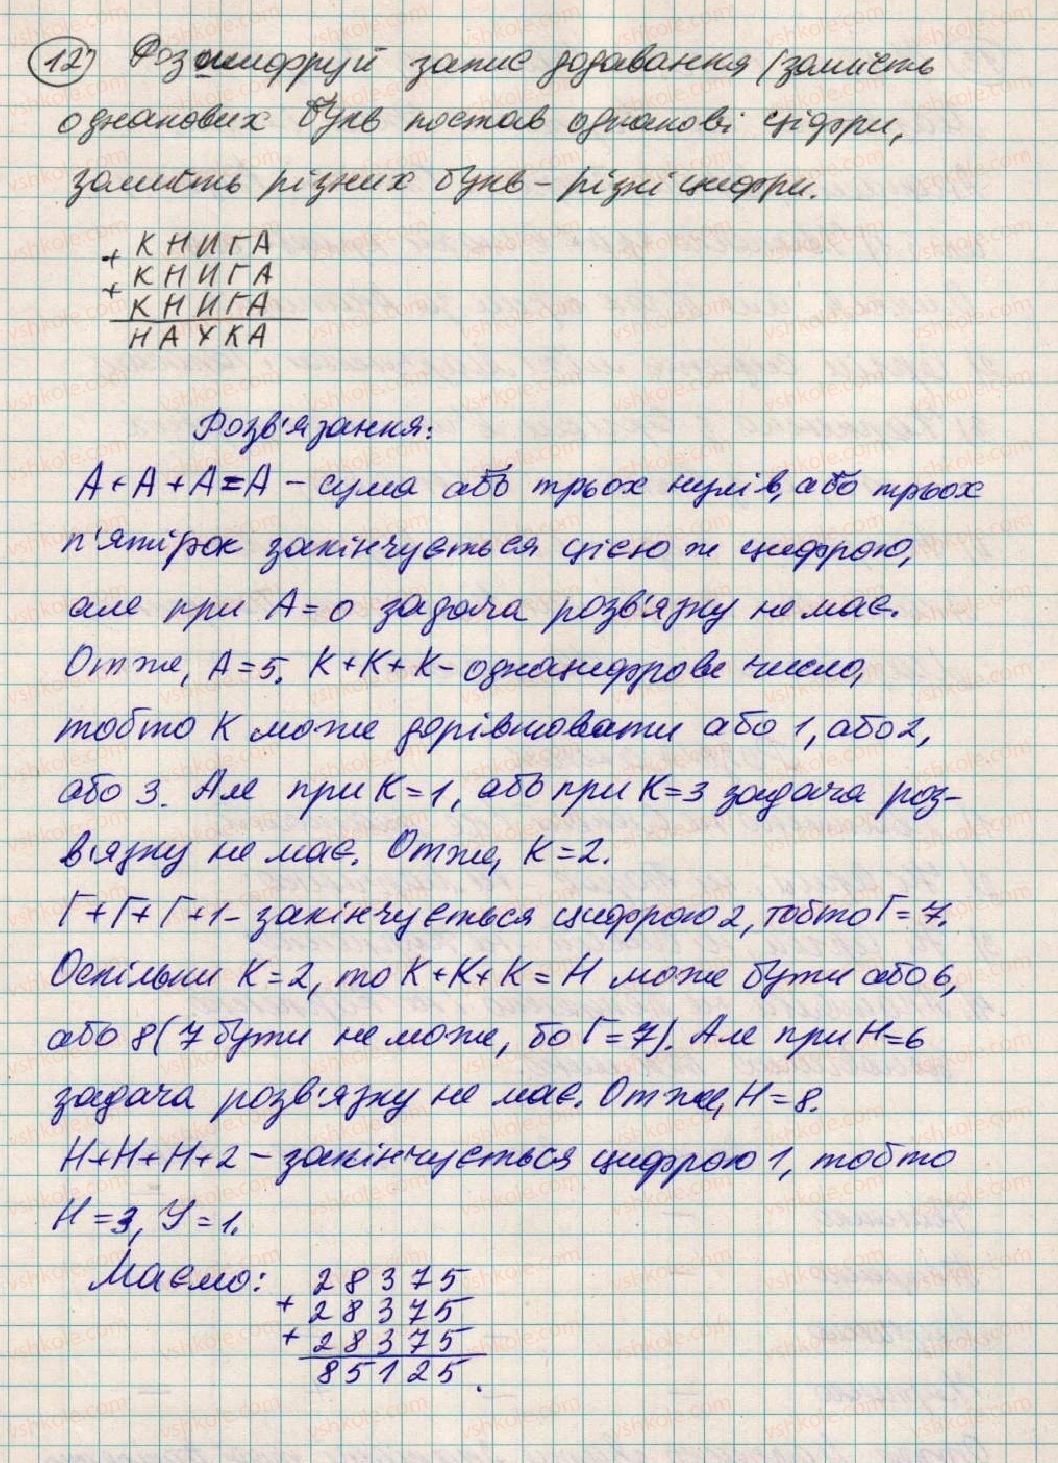 12) Розшифруй запис додавання (замість
однакових букв постав однакові цифри,
замість різних букв – різні цифри.
+ К Н И Г А
+ К Н И Г А
К Н И Г А
Н А У К А
Розв'язання:
А+А+А=А – сума або трьох нулів, або трьох
п'ятірок закінчується цією ж цифрою,
але при А=0 задача розв'язку не має.
Отже, А=5. К+К+К – одноцифрове число,
тобто К може дорівнювати або 1, або 2,
або 3. Але при К=1, або при К=3 задача роз-
в'язку не має. Отже, К=2.
Г+Г+Г+1 – закінчується цифрою 2, тобто Г=7.
Оскільки К=2, то К+К+К=Н може бути або 6,
або 8 (7 бути не може, бо Г=7). Але при Н=6
задача розв'язку не має. Отже, Н=8.
Н+Н+Н+2 – закінчується цифрою 1, тобто
Н=3, У=1.
Маємо: 28375
+ 28375
+ 28375
85125.